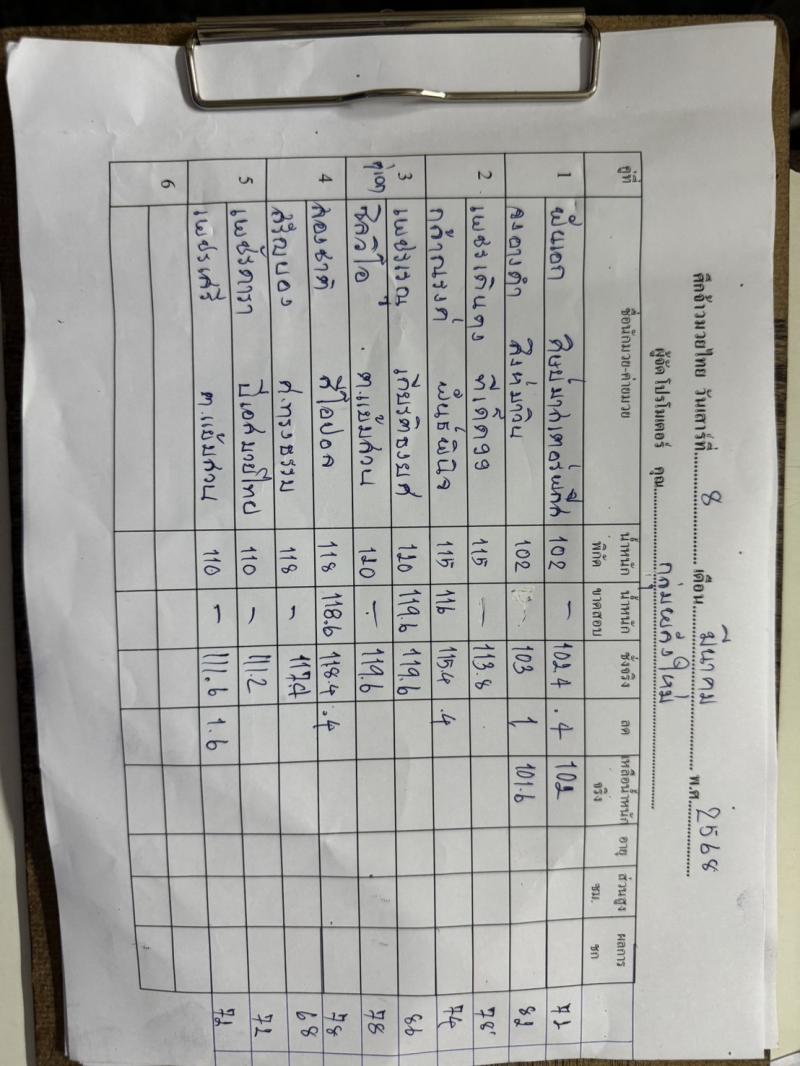 ศึกจ้าวมวยไทย วันเสาร์ที่ 8 เดือน มีนาคม พ.ศ. 2568
ผู้จัด โปรโมเตอร์ คุณ กลุ่มพลังใหม่
คู่ที่ ชื่อนักมวย-ค่ายมวย น้ำหนักพิกัด น้ำหนักขาดสอบ ชั่งจริง ลด เหลือน้ำหนักจริง อายุ ส่วนสูง ซม. ผลการชก
1 พันเอก ศิษย์มาสเตอร์ 102 – 102.4 .4 102
สิงห์มาวิน 102 – 103 1 101.6
2 เพชรเดินดง ทีเด็ด99 115 – 113.8 78
กล้าณรงค์ พันธ์พินิจ 115 116 115.4 .4
3 เกียรติยงยศ 120 119.6 119.6
คู่เอก ซิลวิโอ้ ต.แย้มสวน 120 – 119.6 78
4 สองชาติ สีโอปอล 118 118.6 118.4 .4 78
ส.ทรงธรรม 118 – 68
5 เพชรดารา ปีเอสมวยไทย 110 – 111.2 72
เพชรเสรี ต.แย้มสวน 110 – 111.6 1.6
6